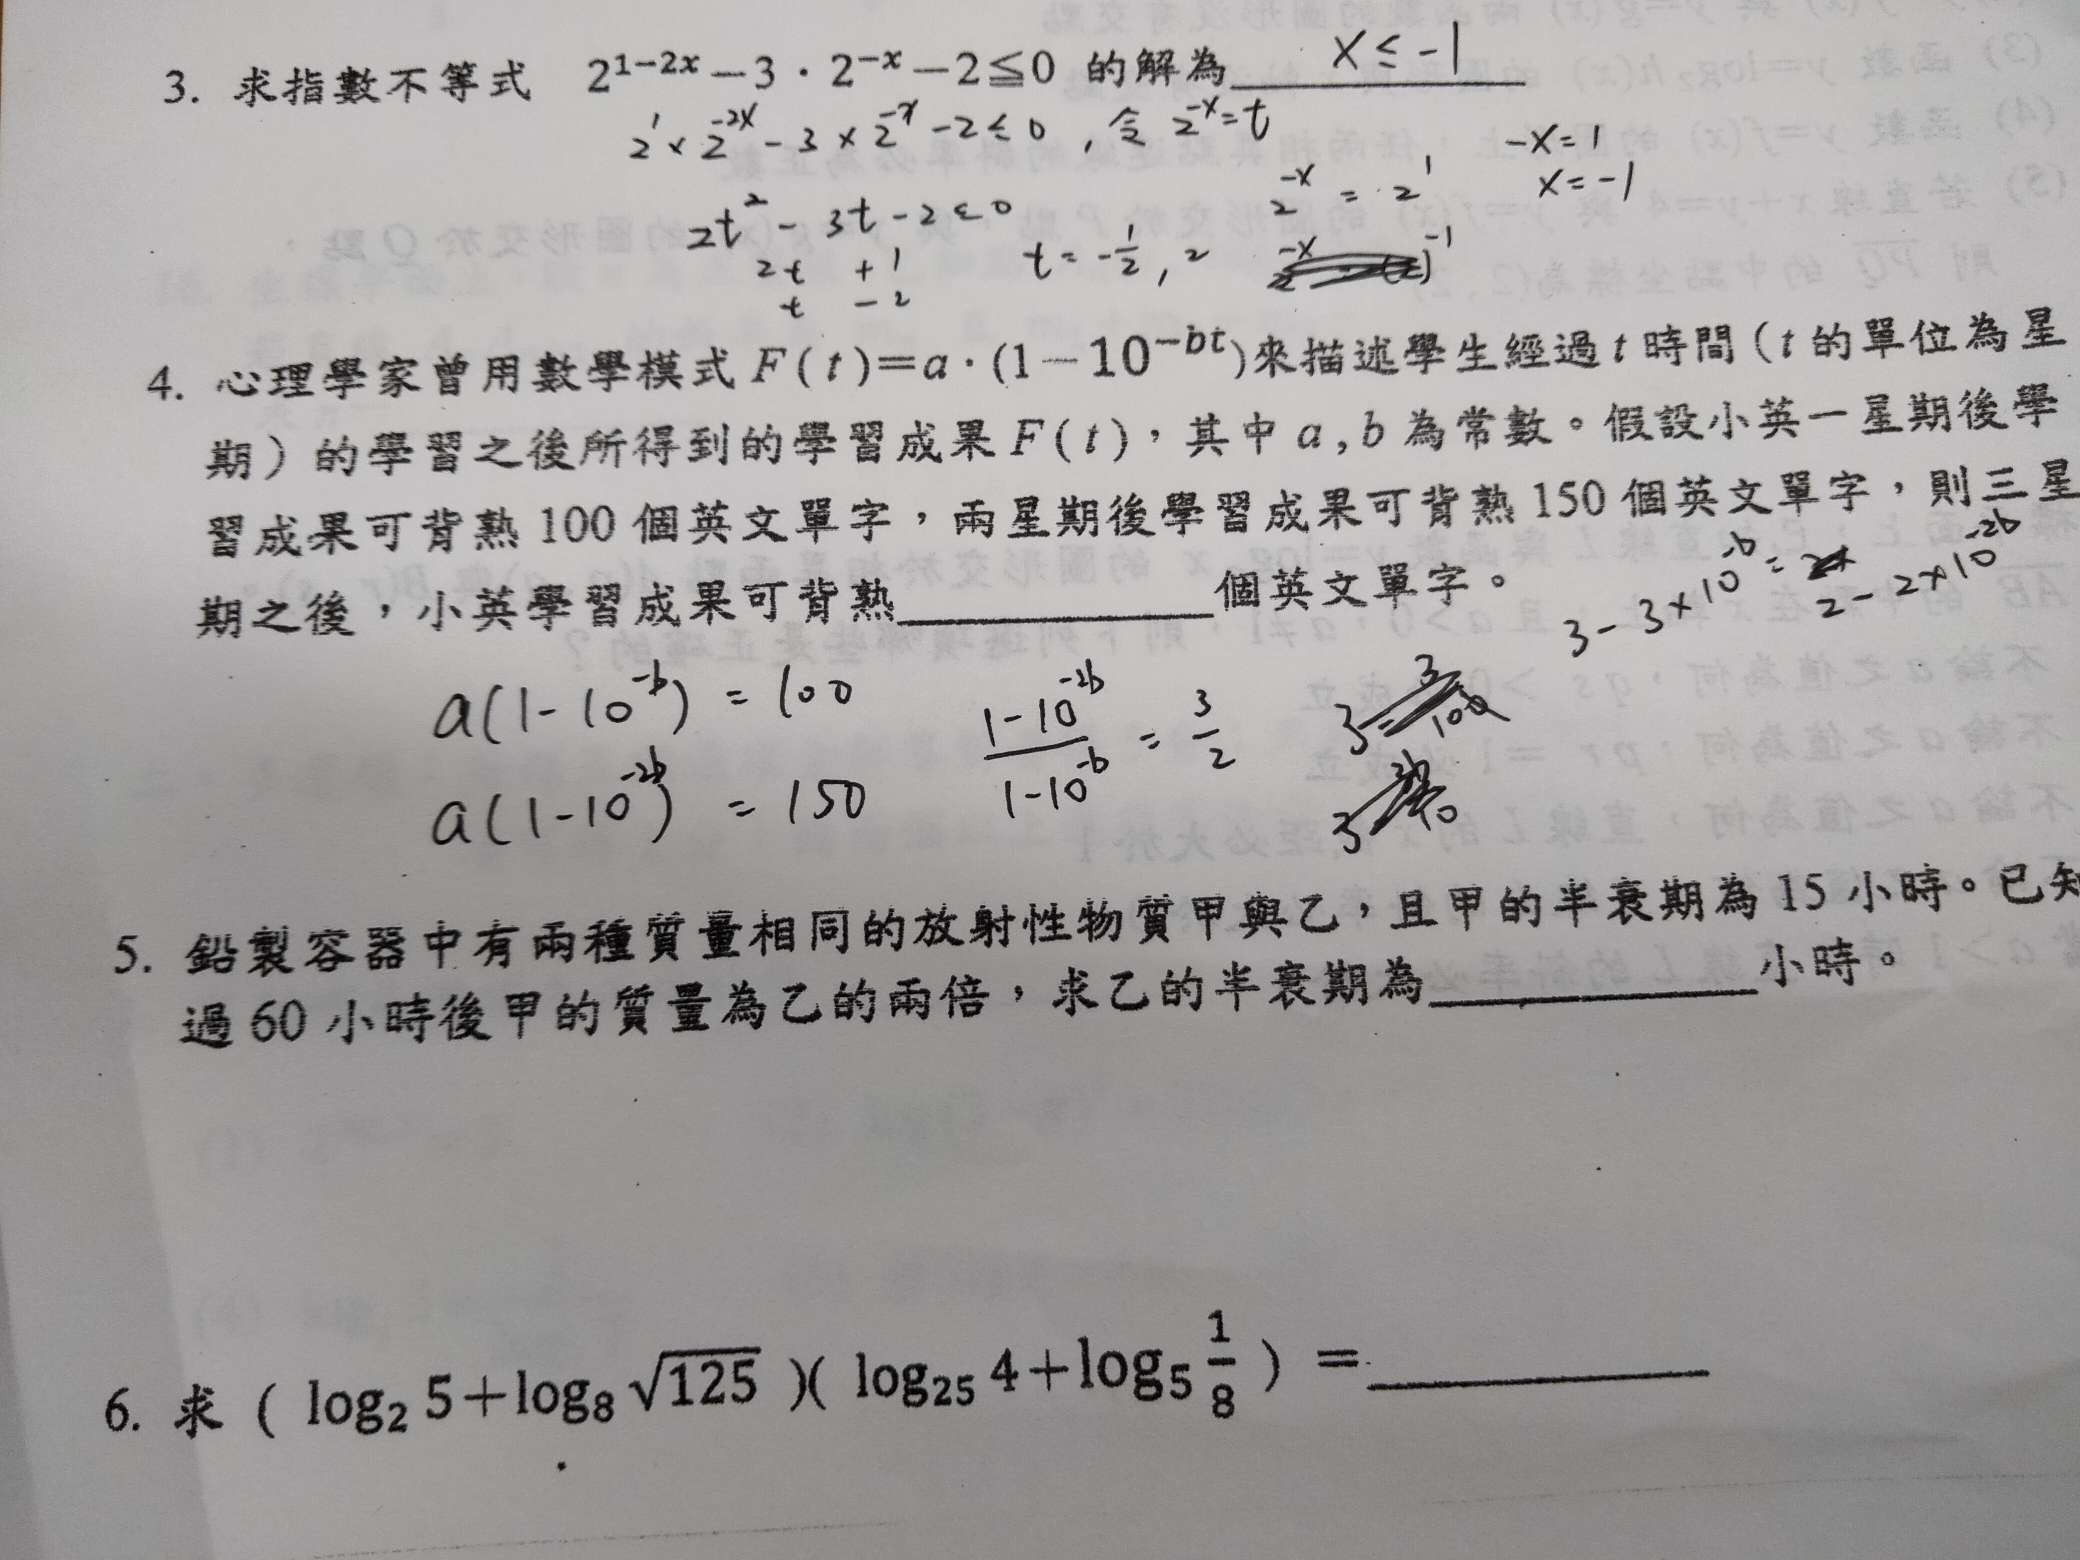 3. 求指數不等式 2^{1-2x}-3·2^{-x}-2≦0 的解為 x ≤ -1
2^1 × 2^{-2x} - 3 × 2^{-x} - 2 ≤ 0 , 令 2^{-x} = t
-x = 1
2^{-x} = 2^1
x = -1
2t^2 - 3t - 2 ≤ 0
2t + 1
t = -1/2 , 2
t - 2
4. 心理學家曾用數學模式 F(t)=a·(1-10^{-bt})來描述學生經過 t 時間（t 的單位為星
期）的學習之後所得到的學習成果 F(t)，其中 a,b 為常數。假設小英一星期後學
習成果可背熟 100 個英文單字，兩星期後學習成果可背熟 150 個英文單字，則三星
期之後，小英學習成果可背熟____個英文單字。
3 - 3 × 10^{-b} = 2 - 2 × 10^{-2b}
a(1-10^{-b}) = 100
a(1-10^{-2b}) = 150
(1-10^{-2b})/(1-10^{-b}) = 3/2
5. 鉛製容器中有兩種質量相同的放射性物質甲與乙，且甲的半衰期為 15 小時。已知
過 60 小時後甲的質量為乙的兩倍，求乙的半衰期為____小時。
6. 求 ( log₂ 5+log₈ √125 )( log₂₅ 4+log₅ 1/8 ) =____